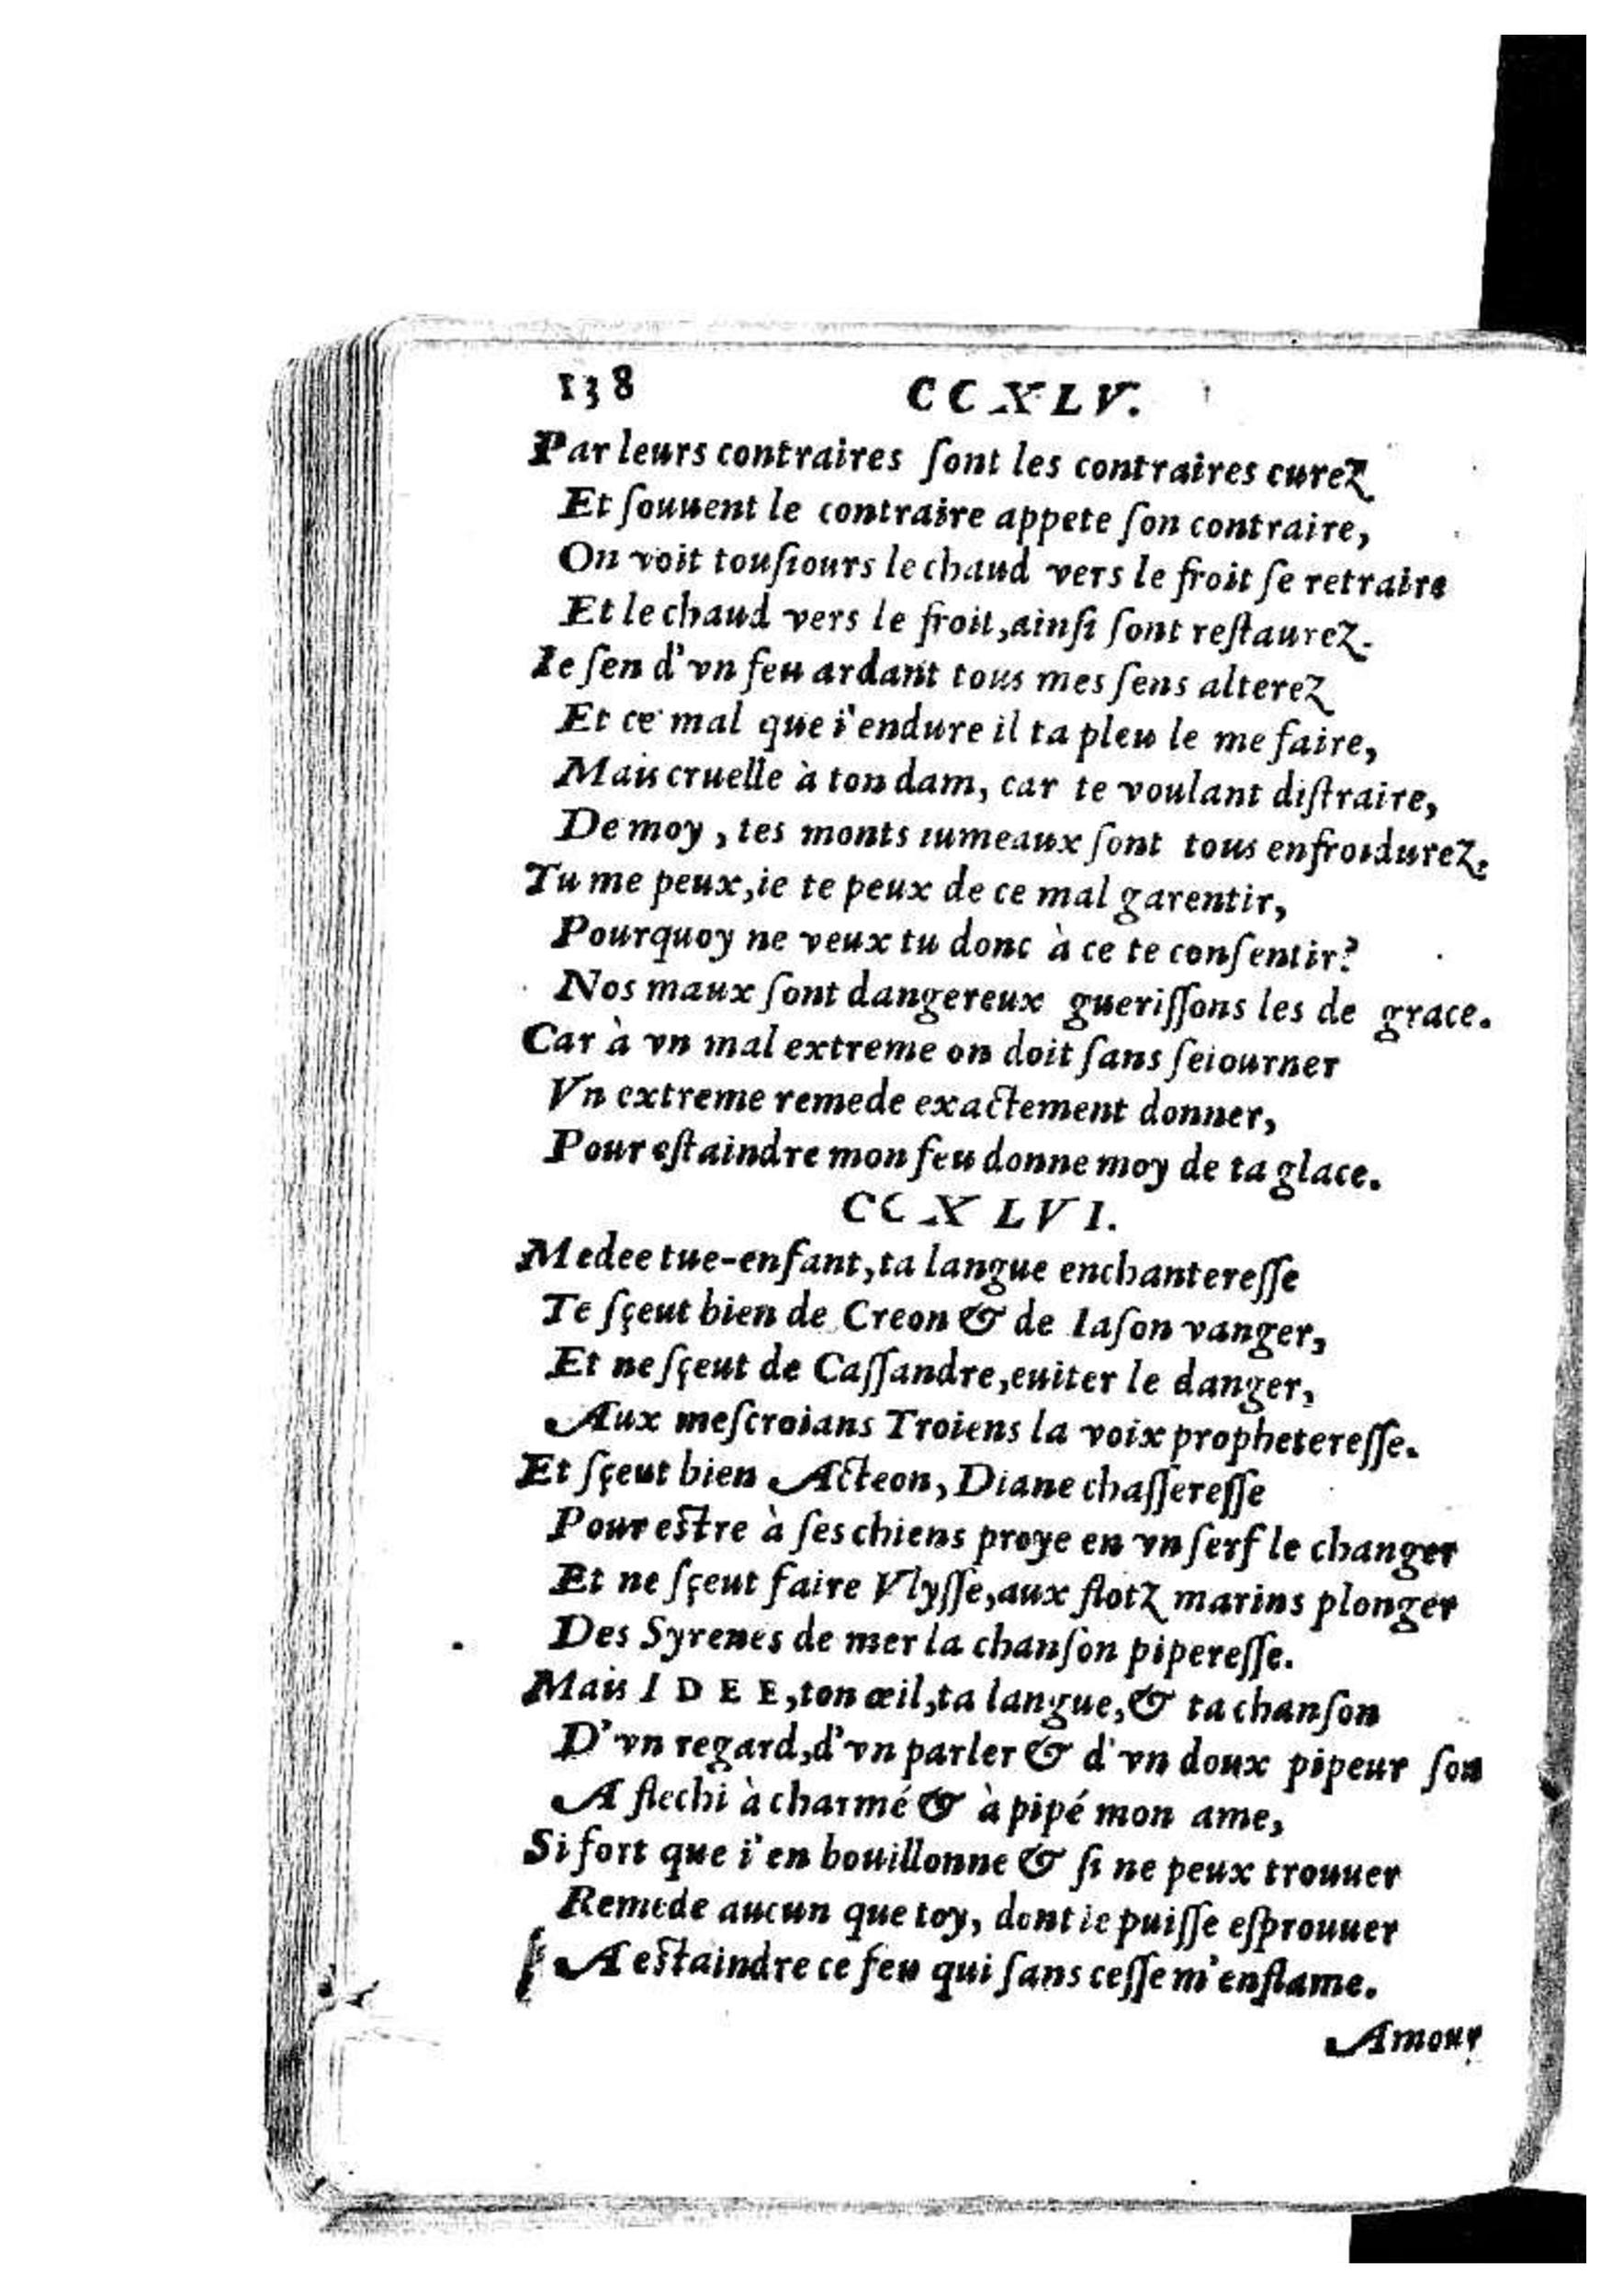 138 CCXLV.
Par leurs contraires ſont les contraires curez
Et ſouuent le contraire appete ſon contraire,
On voit touſiours le chaud vers le froit ſe retraire
Et le chaud vers le froit, ainſi ſont reſtaurez.
Ie ſen d'vn feu ardant tous mes ſens alterez
Et ce mal que i'endure il ta pleu le me faire,
Mais cruelle à ton dam, car te voulant diſtraire,
De moy, tes monts iumeaux ſont tous enfroidurez.
Tu me peux, ie te peux de ce mal garentir,
Pourquoy ne veux tu donc à ce te conſentir?
Nos maux ſont dangereux gueriſſons les de grace.
Car à vn mal extreme on doit ſans ſeiourner
Vn extreme remede exactement donner,
Pour eſtaindre mon feu donne moy de ta glace.
CCXLVI.
Medee tue-enfant, ta langue enchantereſſe
Te ſçeut bien de Creon & de Iaſon vanger,
Et ne ſçeut de Caſſandre, euiter le danger,
Aux meſcroians Troiens la voix prophetereſſe.
Et ſçeut bien Acteon, Diane chaſſereſſe
Pour eſtre à ſes chiens proye en vn ſerf le changer
Et ne ſçeut faire Vlyſſe, aux flotz marins plonger
Des Syrenes de mer la chanſon pipereſſe.
Mais IDEE, ton œil, ta langue, & ta chanſon
D'vn regard, d'vn parler & d'vn doux pipeur ſon
A flechi à charmé & à pipé mon ame,
Si fort que i'en bouillonne & ſi ne peux trouuer
Remede aucun que toy, dont ie puiſſe eſprouuer
A eſtaindre ce feu qui ſans ceſſe m'enflame.
Amour